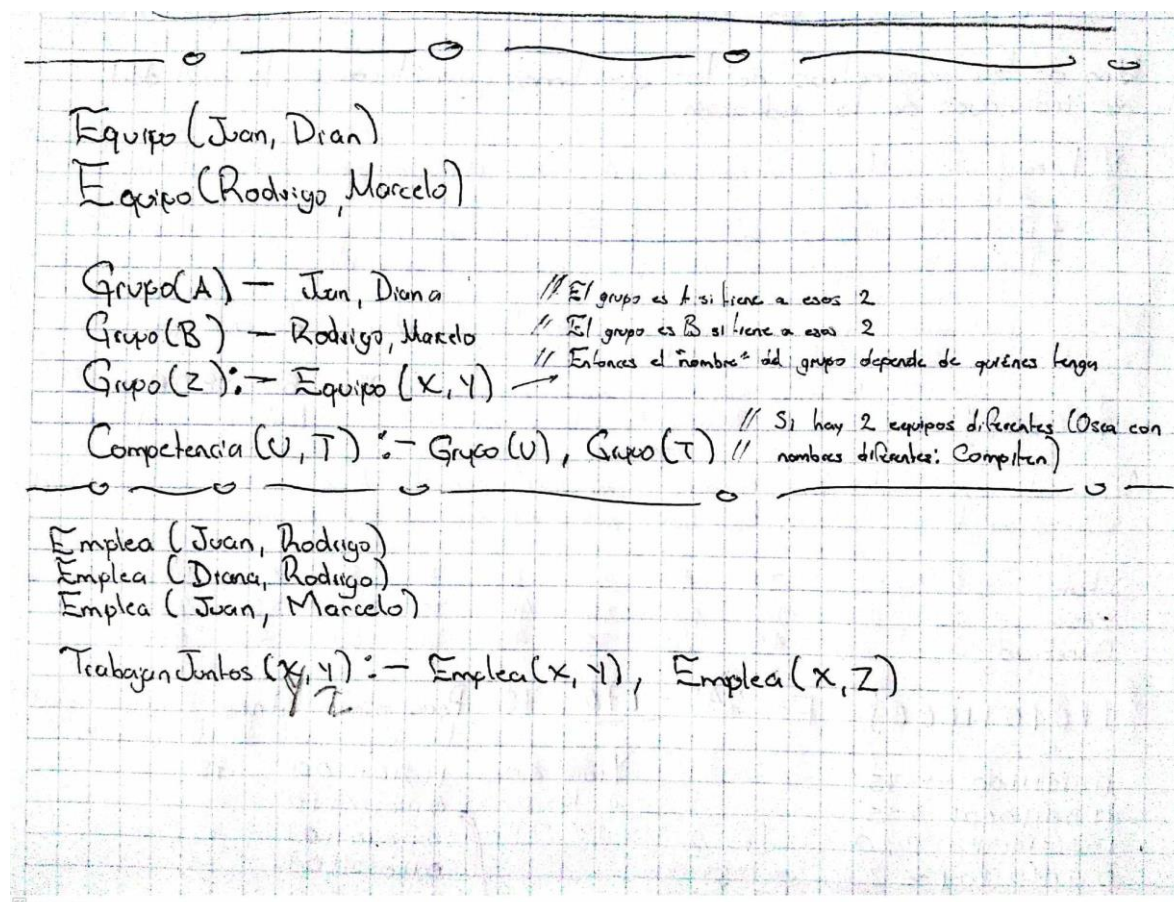 Equipo (Juan, Dian)
Equipo (Rodrigo, Marcelo)
Grupo(A) — Juan, Diana // El grupo es A si tiene a esos 2
Grupo(B) — Rodrigo, Marcelo // El grupo es B si tiene a esos 2
// Entonces el "nombre" del grupo depende de quiénes tenga
Grupo(Z):— Equipo (X, Y)
Competencia (U, T) :- Grupo(U), Grupo(T) // Si hay 2 equipos diferentes (Osea con
// nombres diferentes: Compiten)
Emplea (Juan, Rodrigo)
Emplea (Diana, Rodrigo)
Emplea (Juan, Marcelo)
Trabajan Juntos (X, Y) :— Emplea(X, Y), Emplea(X, Z)
Y Z